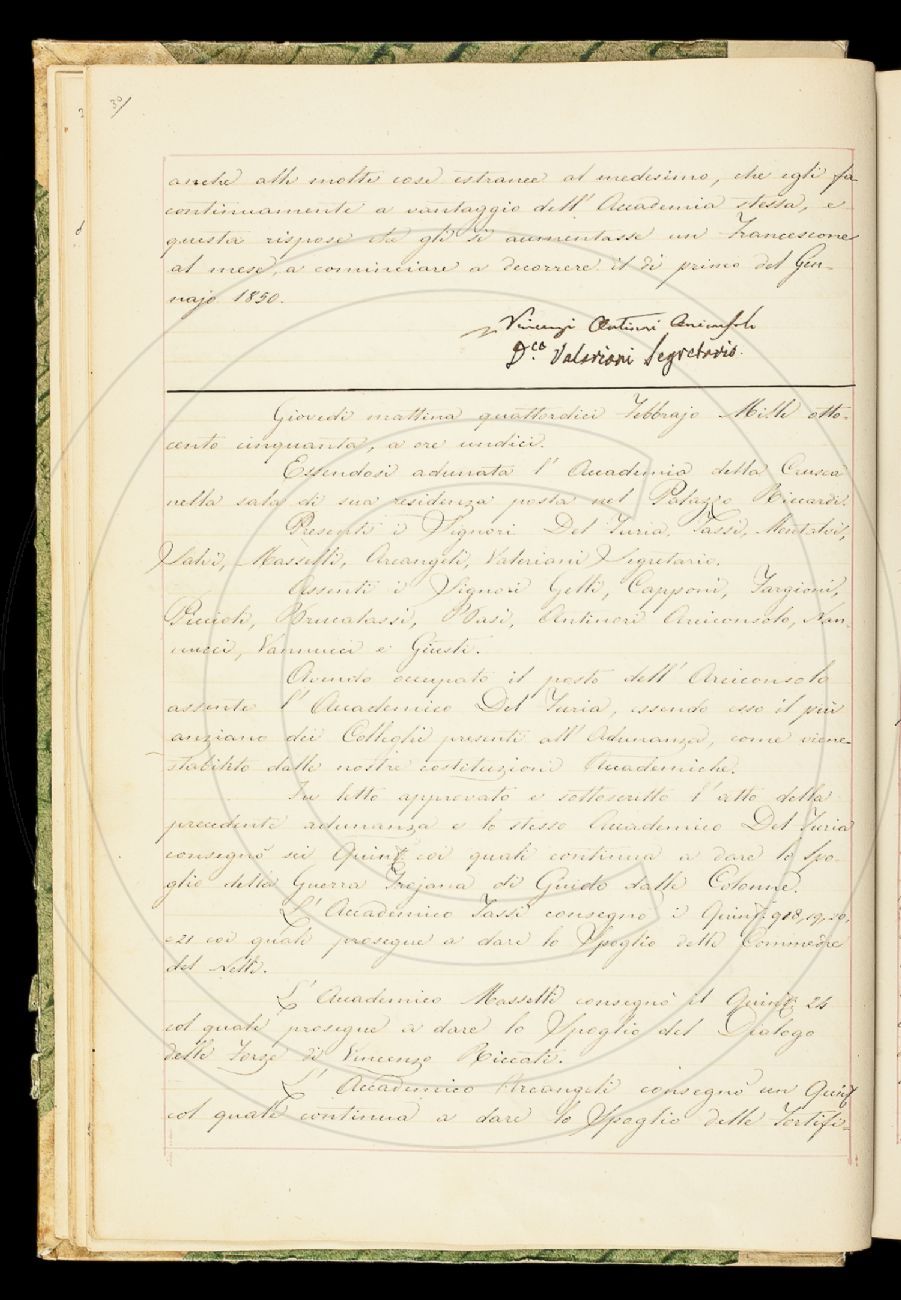 30/
anche alle molte cose estranee al medesimo, che egli fa
continuamente a vantaggio dell' Accademia stessa, e
questa rispose che gli si aumentasse un Francescone
al mese, a cominciare a decorrere il dì primo del Gen-
najo 1850.
Vincenzi Antinori Arciconsolo
D.co Valeriani Segretario.
Giovedì mattina quattordici Febbrajo Mille otto-
cento cinquanta, a ore undici.
Essendosi adunata l' Accademia della Crusca
nella sala di sua residenza posta nel Palazzo Riccardi.
Presenti i Signori Del Furia, Tassi, Montalvi,
Salvi, Masselli, Arcangeli, Valeriani Segretario.
Assenti i Signori Gelli, Capponi, Targioni,
Puccioti, Brucalassi, Basi, Antinori Arciconsolo, Nan-
nucci, Vannucci e Giusti.
Avendo occupato il posto dell' Arciconsolo
assente l' Accademico Del Furia, essendo esso il più
anziano dei Colleghi presenti all' Adunanza, come viene
stabilito dalle nostre costituzioni Accademiche.
Fu letto approvato e sottoscritto l' atto della
precedente adunanza e lo stesso Accademico Del Furia
consegnò sei Quint. coi quali continua a dare lo Spo-
glio della Guerra Trojana di Guido dalle Colonne.
L' Accademico Tassi consegnò i Quint. 18, 19, 20,
e 21 coi quali prosegue a dare lo Spoglio delle Commedie
del Nelli.
L' Accademico Masselli consegnò il Quint. 24
col quale prosegue a dare lo Spoglio del Dialogo
delle Forze di Vincenzo Riccati.
L' Accademico Arcangeli consegnò un Quint.
col quale continua a dare lo Spoglio delle Fortifi-